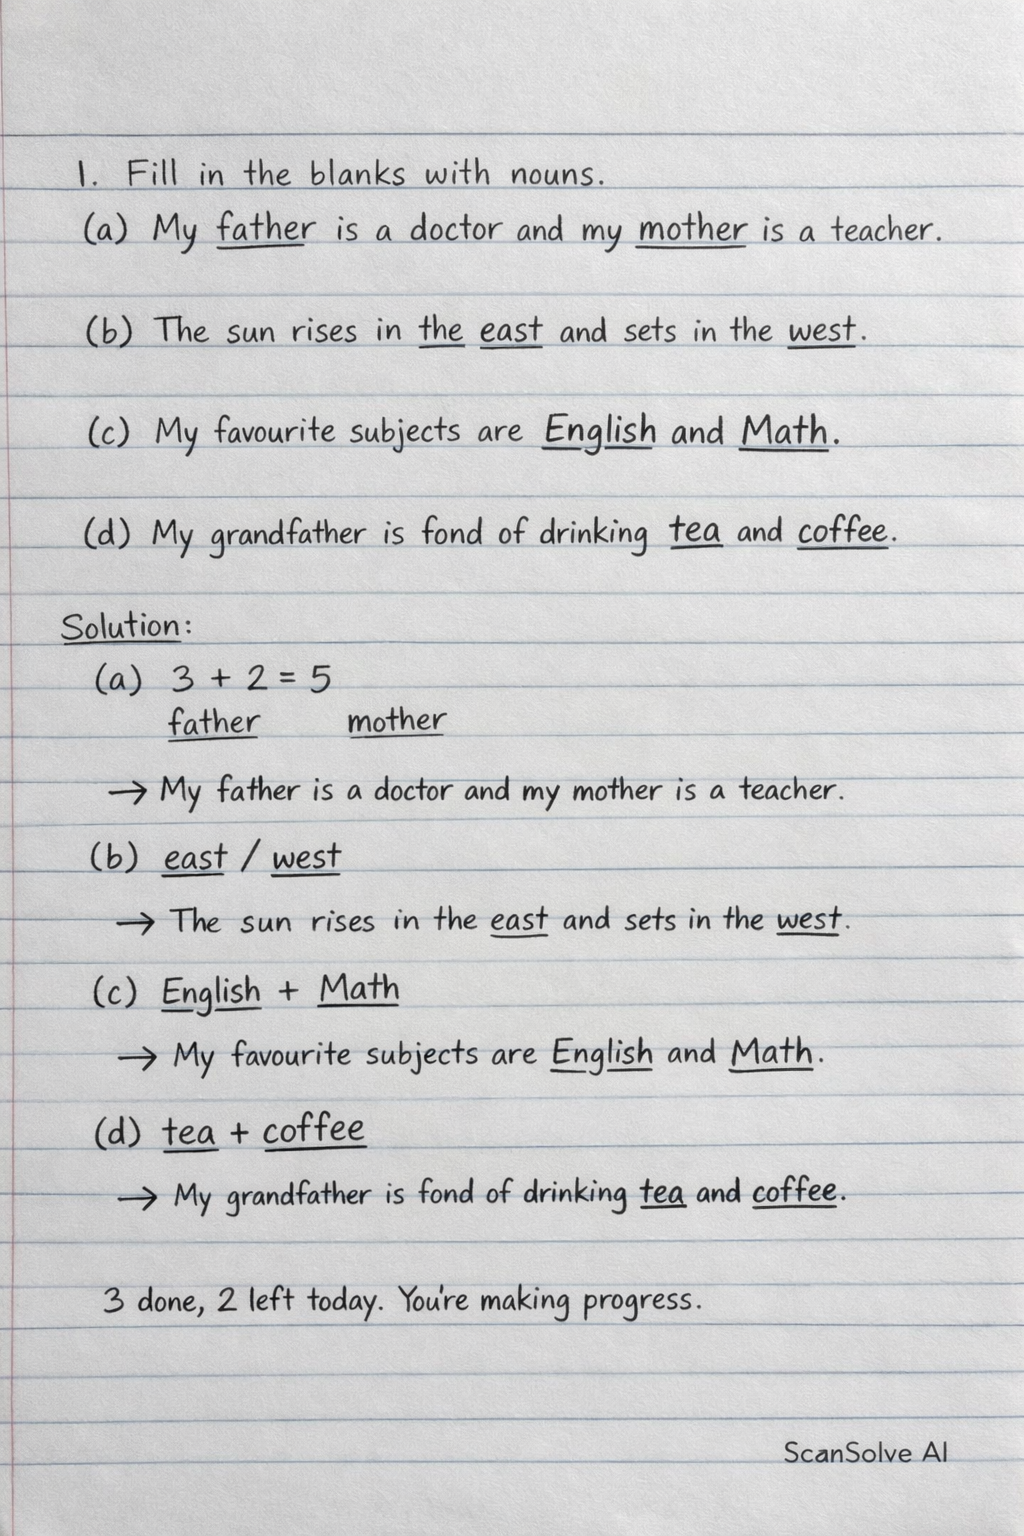 1. Fill in the blanks with nouns.
(a) My father is a doctor and my mother is a teacher.
(b) The sun rises in the east and sets in the west.
(c) My favourite subjects are English and Math.
(d) My grandfather is fond of drinking tea and coffee.
Solution:
(a) 3 + 2 = 5
father mother
→ My father is a doctor and my mother is a teacher.
(b) east / west
→ The sun rises in the east and sets in the west.
(c) English + Math
→ My favourite subjects are English and Math.
(d) tea + coffee
→ My grandfather is fond of drinking tea and coffee.
3 done, 2 left today. You're making progress.
ScanSolve AI